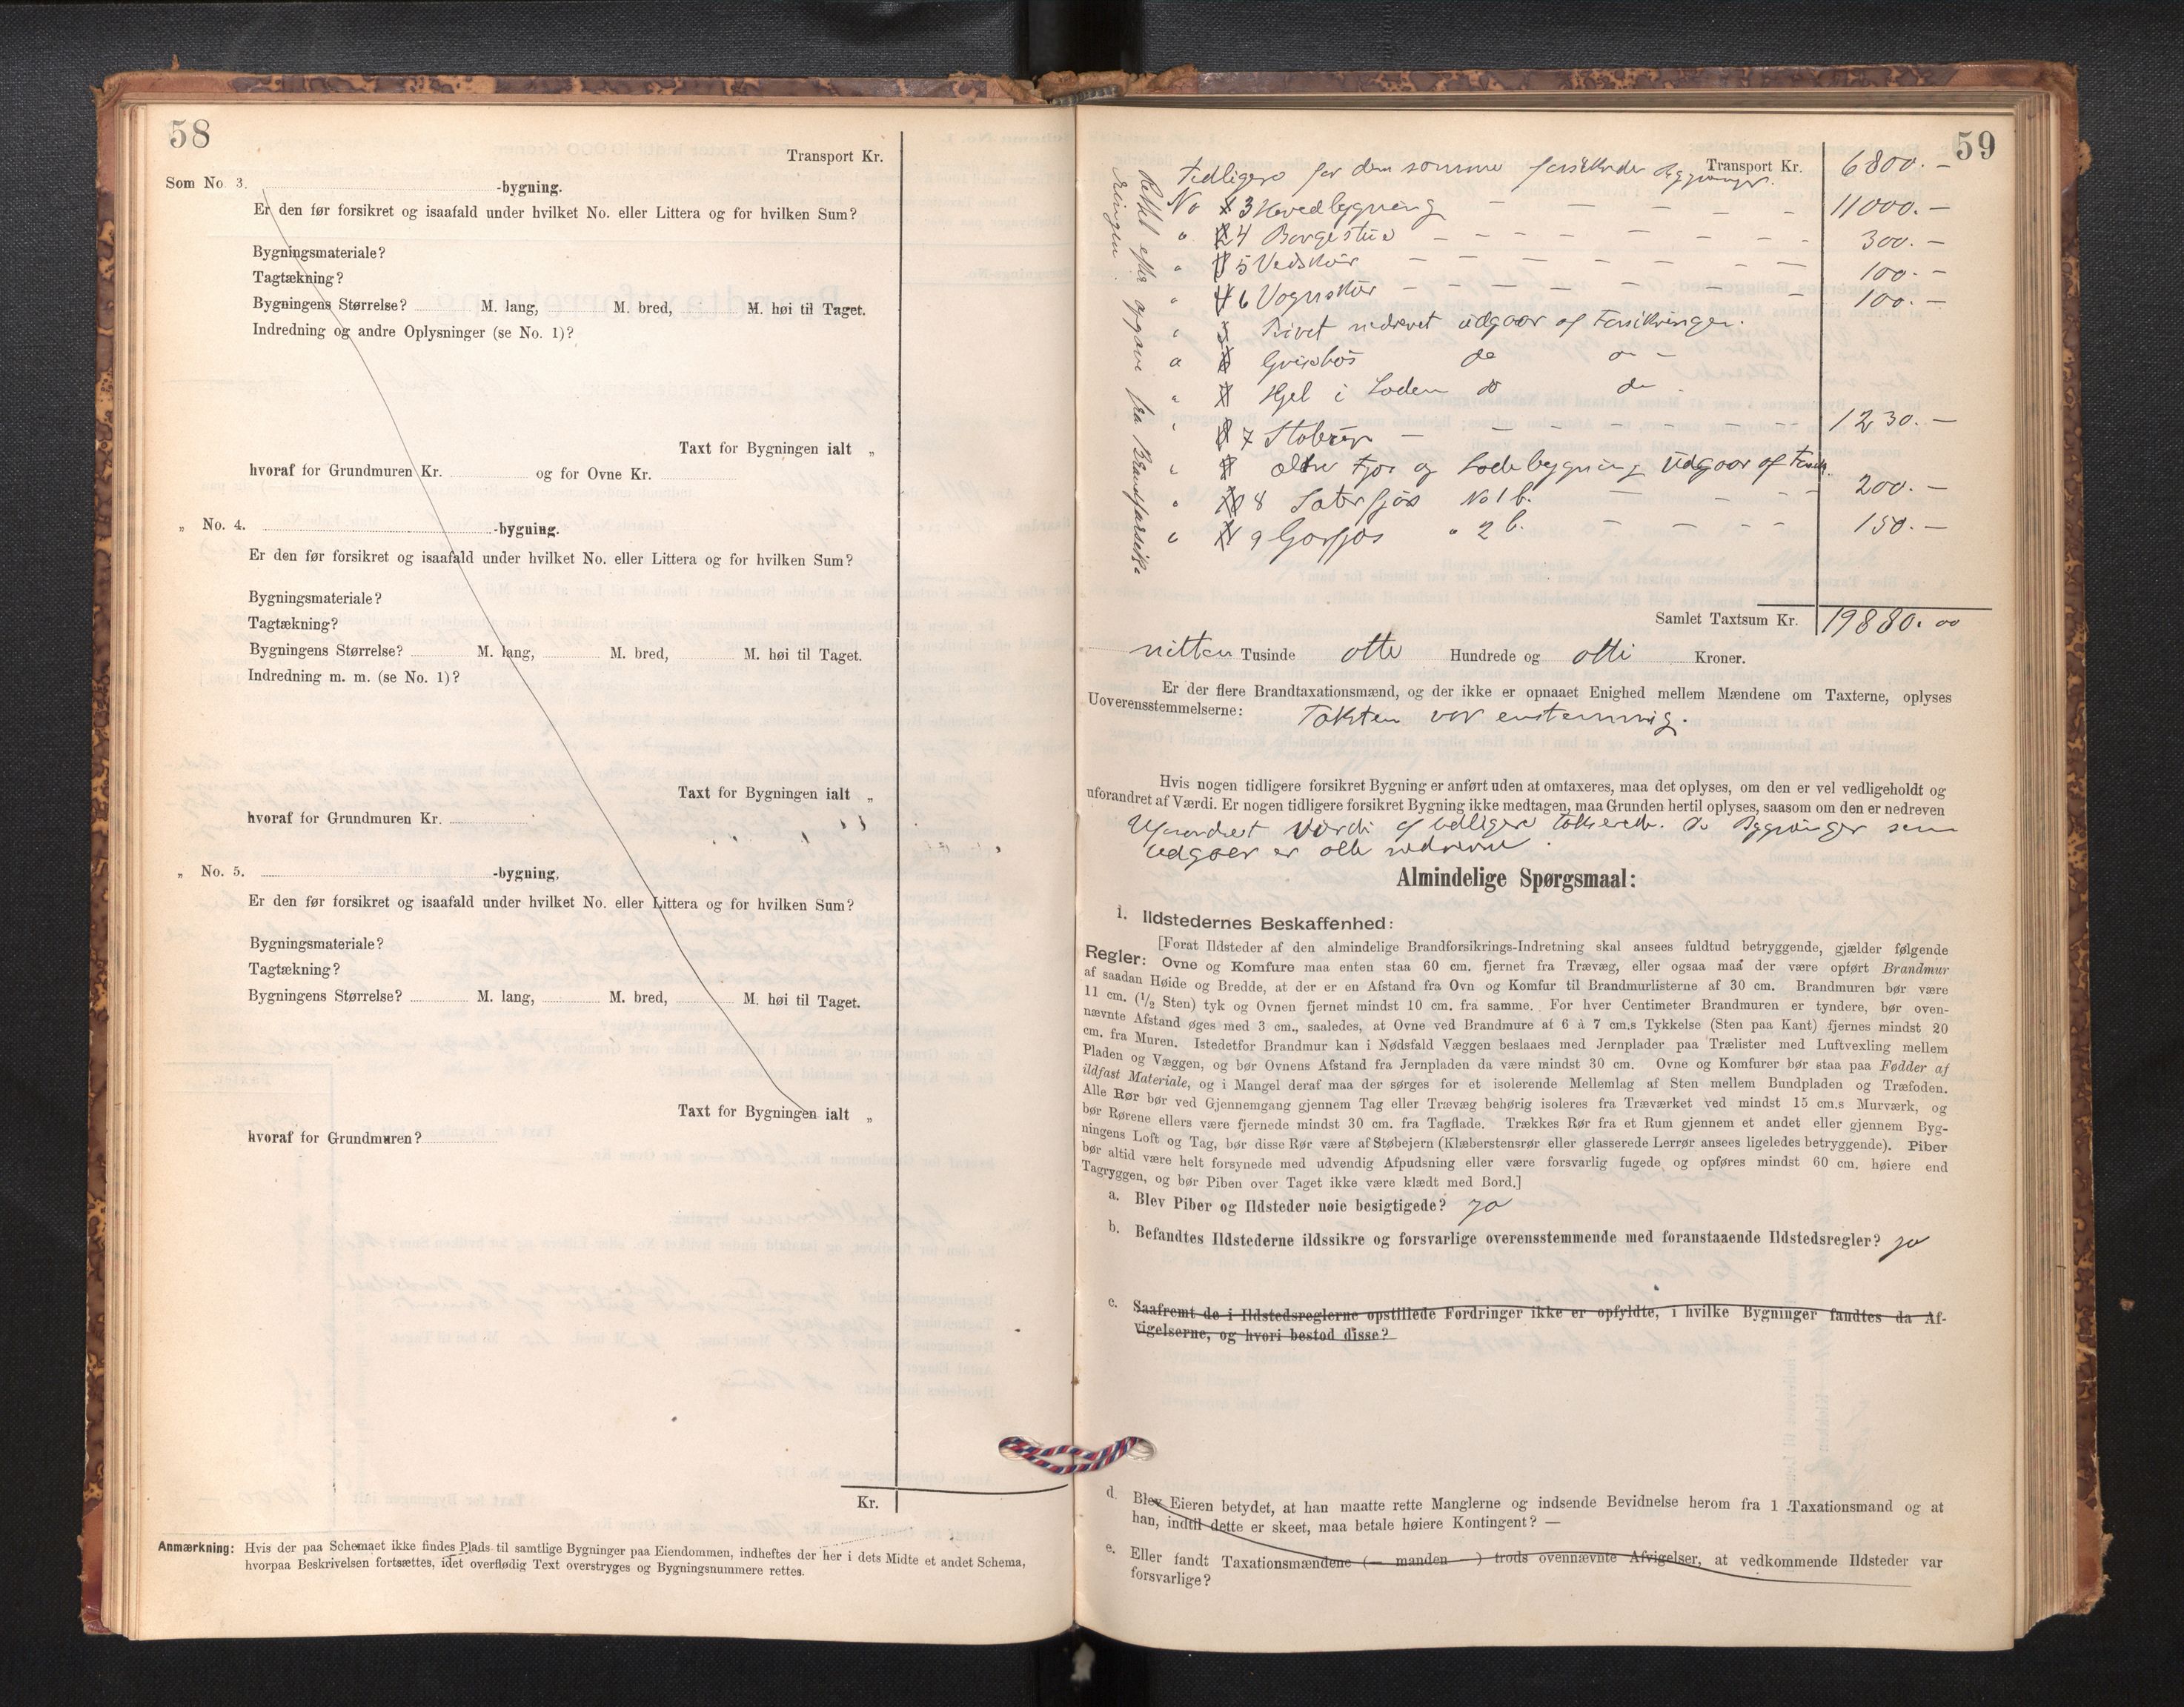 58
Transport Kr.
Som No 3. -bygning.
Er den før forsikret og isaafald under hvilket No. eller Littera og for hvilken Sum?
Bygningsmateriale?
Tagtækning?
Bygningens Størrelse? M. lang, M. bred, M. høi til Taget.
Indredning og andre Oplysninger (se No. 1)?
Taxt for Bygningen ialt „
hvoraf for Grundmuren Kr. og for Ovne Kr.
„ No. 4. -bygning.
Er den før forsikret og isaafald under hvilket No. eller Littera og for hvilken Sum?
Bygningsmateriale?
Tagtækning?
Bygningens Størrelse? M. lang, M. bred, M. høi til Taget.
Indredning m. m. (se No. 1)?
Taxt for Bygningen ialt „
hvoraf for Grundmuren Kr.
„ No. 5. -bygning,
Er den før forsikret og isaafald under hvilket No. eller Littera og for hvilken Sum?
Bygningsmateriale?
Tagtækning?
Bygningens Størrelse? M. lang, M. bred, M. høi til Taget.
Taxt for Bygningen ialt „
hvoraf for Grundmuren?
Kr.
Anmærkning: Hvis der paa Schemaet ikke findes Plads til samtlige Bygninger paa Eiendommen, indheftes der her i dets Midte et andet Schema,
hvorpaa Beskrivelsen fortsættes, idet overflødig Text overstryges og Bygningsnummere rettes.
59
Transport Kr. 6800. -
Tidligere for dem samme forsikrede Bygninger.
No 3 Hovedbygning - - - - - 11000. -
" 4 Borgestue - - - - - - - 300. -
" 5 Vedskur - - - - - - - 100. -
" 6 Vognskur - - - - - - 100. -
" 5 nedrevet udgaar af Forsikringen.
" Grisehus do do -
" Hjel i Loden do do -
" 7 Stabur - - - - - - 1230. -
" ældre Fjøs og Lodebygning udgaar af Forsik.
" 8 Sæterfjøs No 1 b. - - - - 200. -
" 9 Gorfjøs " 2 b. - - - - 150. -
Rettet efter opgave fra Brandforsik-
ringen.
Samlet Taxtsum Kr. 19880.00
nitten Tusinde otte Hundrede og otti Kroner.
Er der flere Brandtaxationsmænd, og der ikke er opnaaet Enighed mellem Mændene om Taxterne, oplyses
Uoverensstemmelserne: Taksten var enstemmig.
Hvis nogen tidligere forsikret Bygning er anført uden at omtaxeres, maa det oplyses, om den er vel vedligeholdt og
uforandret af Værdi. Er nogen tidligere forsikret Bygning ikke medtagen, maa Grunden hertil oplyses, saasom om den er nedreven
Uforandret Værdi af tidligere takserede. De Bygninger som
udgaar er alle nedrevne.
Almindelige Spørgsmaal:
1. Ildstedernes Beskaffenhed:
[Forat Ildsteder af den almindelige Brandforsikrings-Indretning skal ansees fuldtud betryggende, gjælder følgende
Regler: Ovne og Komfure maa enten staa 60 cm. fjernet fra Trævæg, eller ogsaa maa der være opført Brandmur
af saadan Høide og Bredde, at der er en Afstand fra Ovn og Komfur til Brandmurlisterne af 30 cm. Brandmuren bør være
11 cm. (1/2 Sten) tyk og Ovnen fjernet mindst 10 cm. fra samme. For hver Centimeter Brandmuren er tyndere, bør oven-
nævnte Afstand øges med 3 cm., saaledes, at Ovne ved Brandmure af 6 à 7 cm.s Tykkelse (Sten paa Kant) fjernes mindst 20
cm. fra Muren. Istedetfor Brandmur kan i Nødsfald Væggen beslaaes med Jernplader paa Trælister med Luftvexling mellem
Pladen og Væggen, og bør Ovnens Afstand fra Jernpladen da være mindst 30 cm. Ovne og Komfurer bør staa paa Fødder af
ildfast Materiale, og i Mangel deraf maa der sørges for et isolerende Mellemlag af Sten mellem Bundpladen og Træfoden.
Alle Rør bør ved Gjennemgang gjennem Tag eller Trævæg behørig isoleres fra Træværket ved mindst 15 cm.s Murværk, og
bør Rørene ellers være fjernede mindst 30 cm. fra Tagflade. Trækkes Rør fra et Rum gjennem et andet eller gjennem Byg-
ningens Loft og Tag, bør disse Rør være af Støbejern (Klæberstensrør eller glasserede Lerrør ansees ligeledes betryggende). Piber
bør altid være helt forsynede med udvendig Afpudsning eller være forsvarlig fugede og opføres mindst 60 cm. høiere end
Tagryggen, og bør Piben over Taget ikke være klædt med Bord.]
a. Blev Piber og Ildsteder nøie besigtigede? ja
b. Befandtes Ildstederne ildssikre og forsvarlige overensstemmende med foranstaaende Ildstedsregler? ja
c. Saafremt de i Ildstedsreglerne opstillede Fordringer ikke er opfyldte, i hvilke Bygninger fandtes da Af-
vigelserne, og hvori bestod disse?
d. Blev Eieren betydet, at han maatte rette Manglerne og indsende Bevidnelse herom fra 1 Taxationsmand og at
han, indtil dette er skeet, maa betale høiere Kontingent? —
e. Eller fandt Taxationsmændene (— manden —) trods ovennævnte Afvigelser, at vedkommende Ildsteder var
forsvarlige?